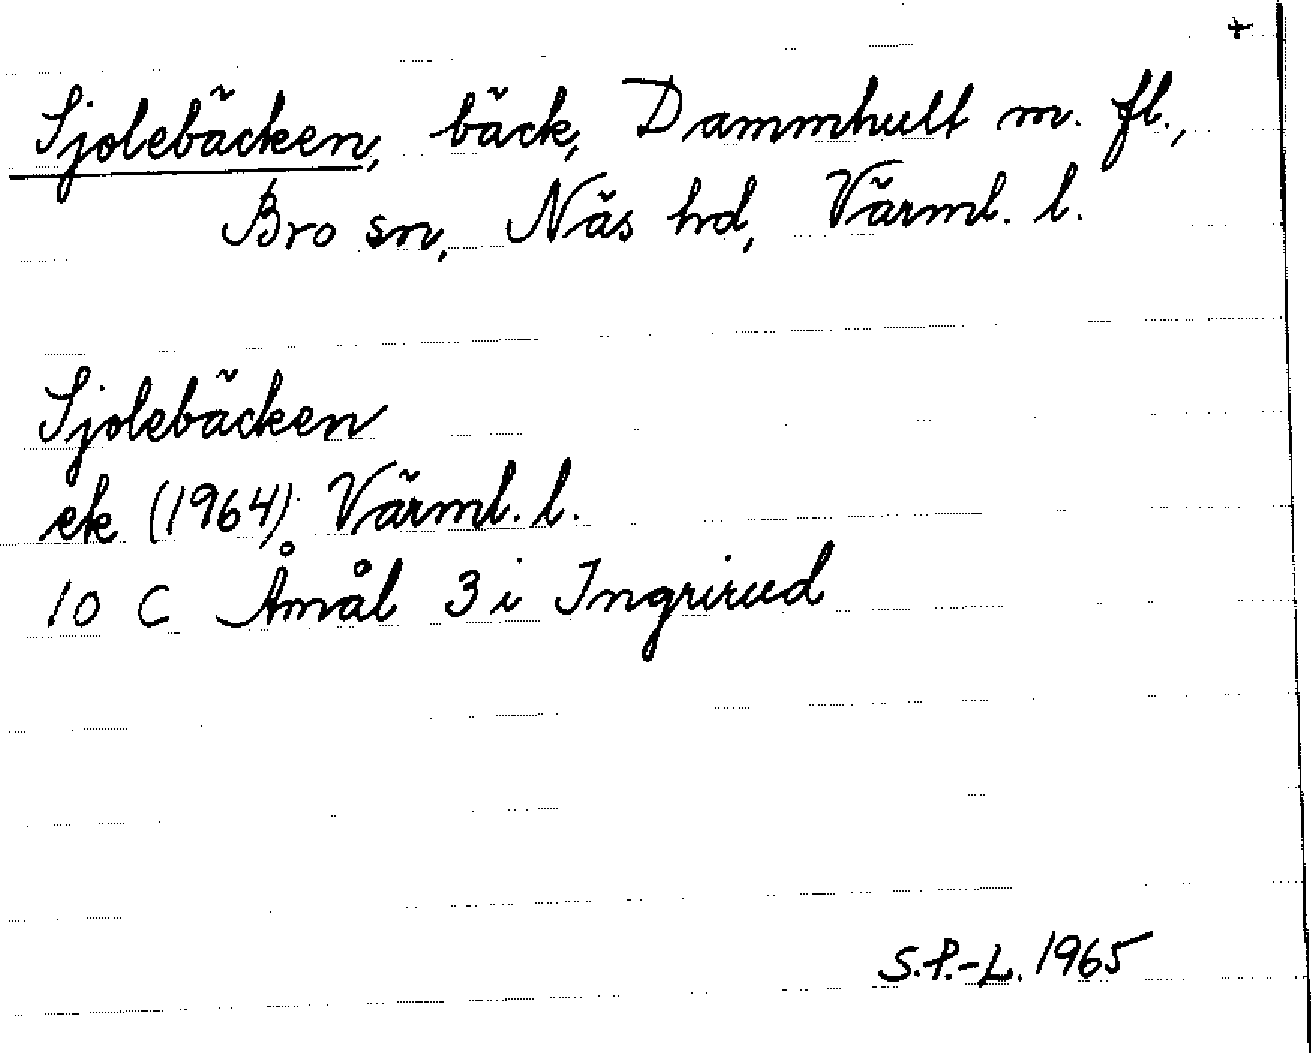 +
Sjolebäcken, bäck, Dammhult m. fl.,
Bro sn, Näs hd, Värml. l.
Sjolebäcken
ek (1964) Värml. l.
10 C Åmål 3 i Ingrirud
S.P.-L. 1965